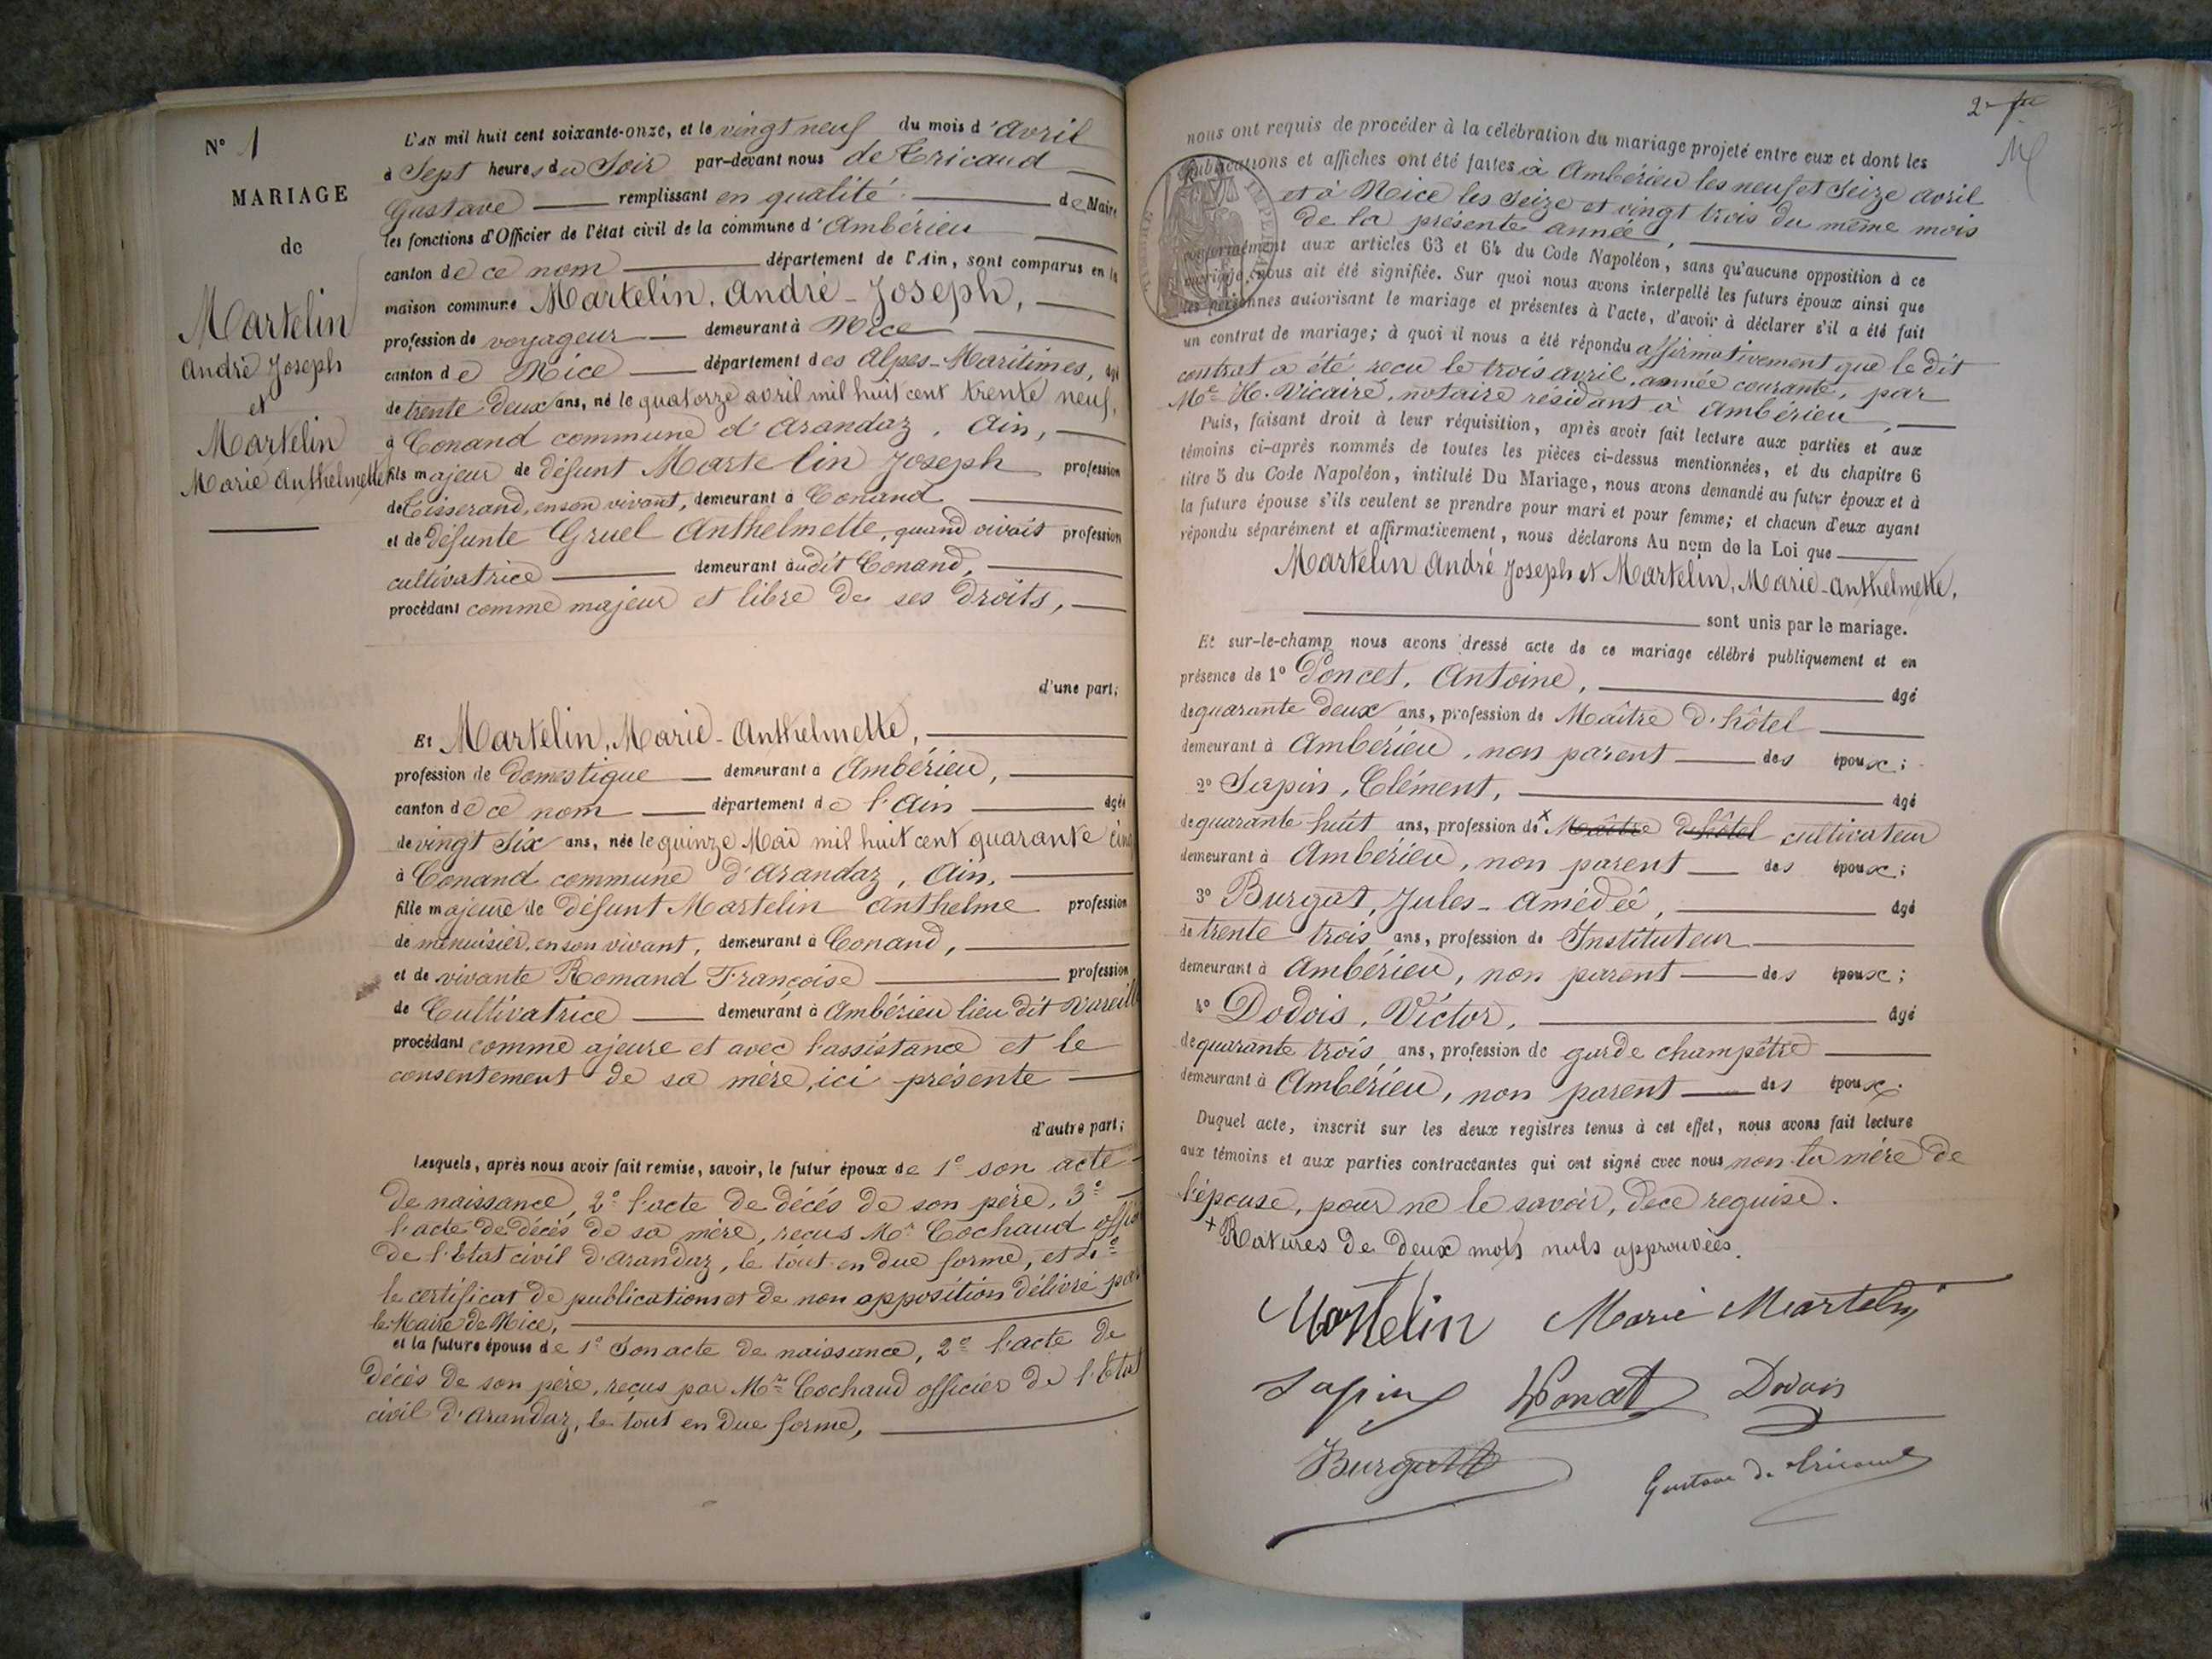 N° 1
MARIAGE
de
Martelin
André Joseph
et
Martelin
Marie Anthelmette
L'an mil huit cent soixante-onze, et le vingt neuf du mois d'Avril
à Sept heures du Soir par-devant nous de Tricaud
Gustave remplissant en qualité de Maire
les fonctions d'Officier de l'état civil de la commune d'Ambérieu
canton de ce nom département de l'Ain, sont comparus en la
maison commune Martelin, André-Joseph,
profession de voyageur demeurant à Nice
canton de Nice département des Alpes-Maritimes, âgé
de trente deux ans, né le quatorze avril mil huit cent trente neuf,
à Conand commune d'Arandaz, Ain,
fils majeur de défunt Martelin Joseph profession
de Tisserand, en son vivant, demeurant à Conand
et de défunte Gruel Anthelmette, quand vivait profession
cultivatrice demeurant audit Conand,
procédant comme majeur et libre de ses droits,
d'une part;
Et Martelin, Marie-Anthelmette,
profession de domestique demeurant à Ambérieu,
canton de ce nom département de l'Ain âgée
de vingt Six ans, née le quinze Mai mil huit cent quarante cinq
à Conand commune d'Arandaz, Ain,
fille majeure de défunt Martelin Anthelme profession
de menuisier, en son vivant, demeurant à Conand,
et de vivante Romand Françoise profession
de Cultivatrice demeurant à Ambérieu lieu dit Vareille
procédant comme ajeure et avec l'assistance et le
consentement de sa mère, ici présente
d'autre part;
Lesquels, après nous avoir fait remise, savoir, le futur époux de 1° son acte
de naissance, 2° l'acte de décés de son père, 3°
l'acte de décès de sa mère, reçus Mr Cochaud offic
de l'Etat civil d'Arandaz, le tout en due forme, et 4°
le certificat de publications et de non opposition délivré par
le Maire de Nice,
et la future épouse de 1° Son acte de naissance, 2° l'acte de
décès de son père, reçus par Mr Cochaud officier de l'Etat
civil d'Arandaz, le tout en due forme,
nous ont requis de procéder à la célébration du mariage projeté entre eux et dont les
publications et affiches ont été faites à Ambérieu les neuf et Seize avril
et à Nice les Seize et vingt trois du même mois
de la présente année,
conformément aux articles 63 et 64 du Code Napoléon, sans qu'aucune opposition à ce
mariage, nous ait été signifiée. Sur quoi nous avons interpellé les futurs époux ainsi que
les personnes autorisant le mariage et présentes à l'acte, d'avoir à déclarer s'il a été fait
un contrat de mariage; à quoi il nous a été répondu affirmativement que le dit
contrat a été reçu le trois avril, année courante, par
Me H. Vicaire, notaire résidant à Ambérieu,
Puis, faisant droit à leur réquisition, après avoir fait lecture aux parties et aux
témoins ci-après nommés de toutes les pièces ci-dessus mentionnées, et du chapitre 6
titre 5 du Code Napoléon, intitulé Du Mariage, nous avons demandé au futur époux et à
la future épouse s'ils veulent se prendre pour mari et pour femme; et chacun d'eux ayant
répondu séparément et affirmativement, nous déclarons Au nom de la Loi que
Martelin André Joseph et Martelin, Marie-Anthelmette,
sont unis par le mariage.
Et sur-le-champ nous avons dressé acte de ce mariage célébré publiquement et en
présence de 1° Poncet, Antoine, âgé
de quarante deux ans, profession de Maître d'hôtel
demeurant à Ambérieu, non parent des époux;
2° Sapin, Clément, âgé
de quarante-huit ans, profession de x Maître d'hôtel cultivateur
demeurant à Ambérieu, non parent des époux;
3° Burgat, Jules-Amédée, âgé
de trente trois ans, profession de Instituteur
demeurant à Ambérieu, non parent des époux;
4° Dodois, Victor, âgé
de quarante trois ans, profession de garde champêtre
demeurant à Ambérieu, non parent des époux.
Duquel acte, inscrit sur les deux registres tenus à cet effet, nous avons fait lecture
aux témoins et aux parties contractantes qui ont signé avec nous non la mère de
l'épouse, pour ne le savoir, de ce requise.
x Ratures de deux mots nuls approuvées.
Martelin Marie Martelin
Sapin Poncet Dodois
Burgat
Gustave de Tricaud